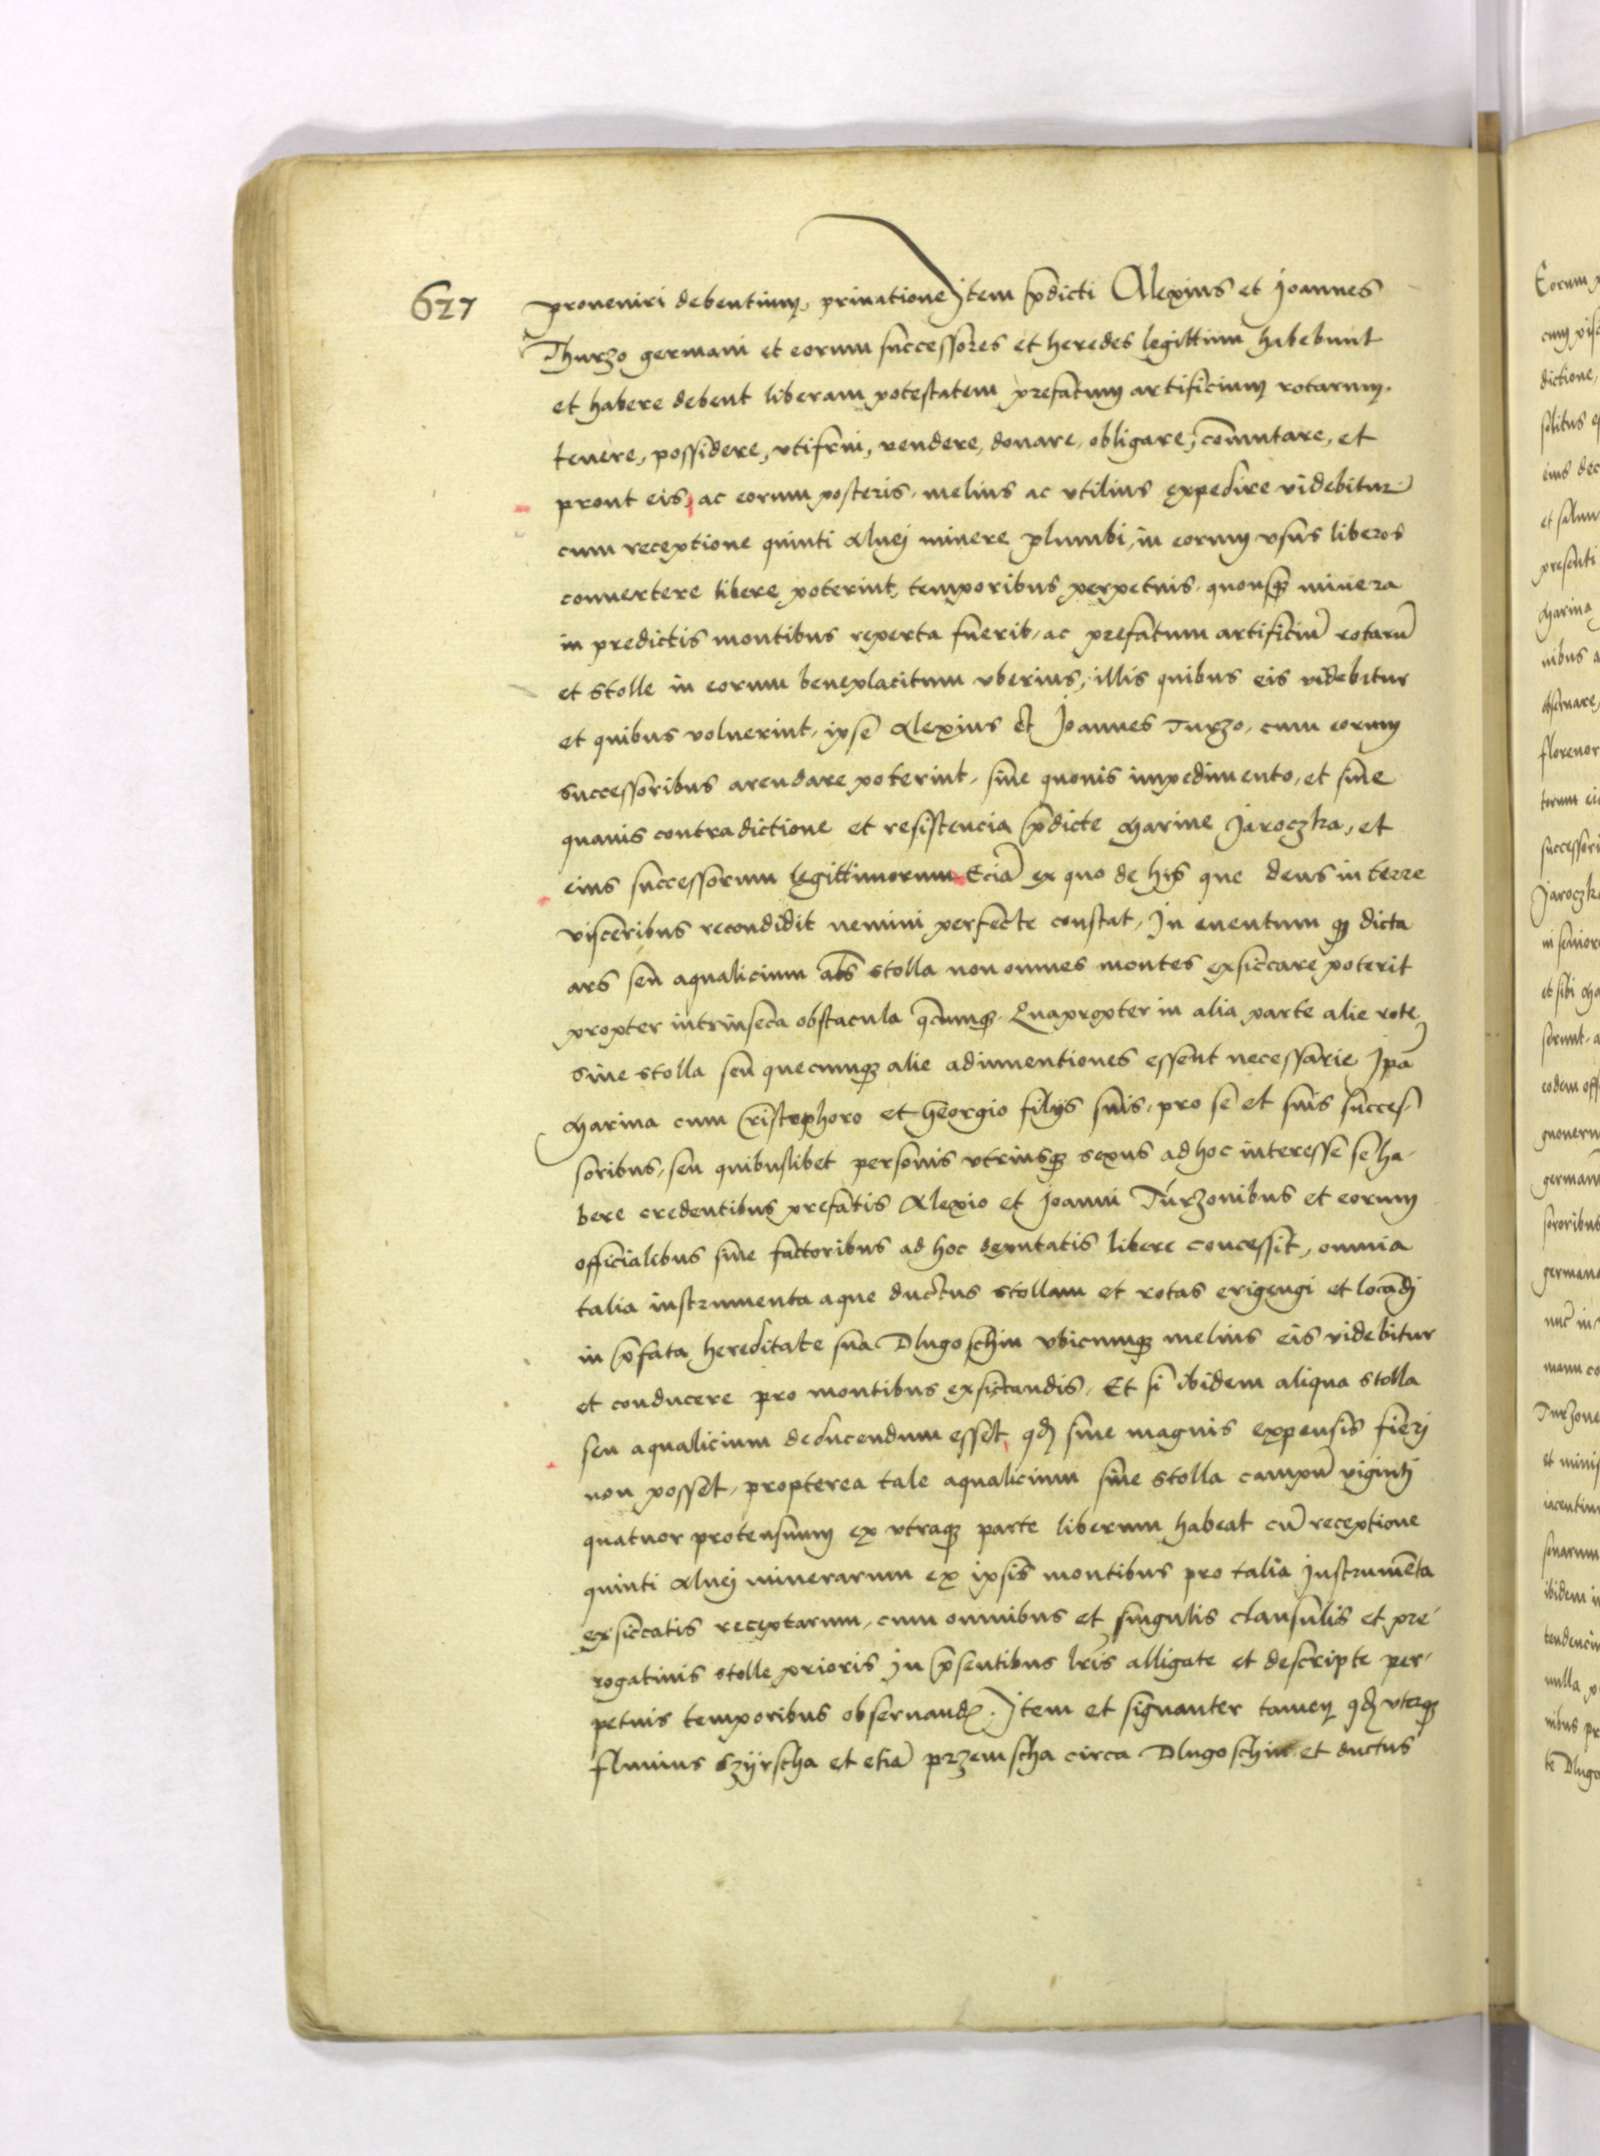 627
proveniri debentium, privatione Item p̄dicti Alexius et Joannes
Thurzo germani et eorum successores et heredes legittimi habebunt
et habere debent liberam potestatem prefatum artificium rotarum.
tenere, possidere, vtifrui, vendere, donare, obligare, com̄utare, et
prout eis, ac eorum posteris, melius ac vtilius expedire videbitur
cum receptione quinti Aluej minere plumbi, in eorum vsus liberos
convertere libere poterint, temporibus perpetuis, quousq minera
in predictis montibus reperta fuerit, ac prefatum artificiū rotarū
et stolle in eorum beneplacitum vberius, illis quibus eis videbitur
et quibus voluerint, ipse Alexius et Joannes Turzo, cum eorum
successoribus arendare poterint, sine quouis impedimento, et sine
quauis contradictione et resistencia p̄dicte Marine Jaroczka, et
eius successorum legittimorum Eciā ex quo de hijs que deus in terre
visceribus recondidit nemini perfecte constat, In euentum q dicta
ars seu aqualicium abs stolla non omnes montes exsiccare poterit
propter intrinseca obstacula qcunq. Quapropter in alia parte alie rote
siue stolla seu quecunq alie adinuentiones essent necessarie Ipā
Marina cum Cristophoro et Georgio filijs suis, pro se et suis succes-
soribus, seu quibuslibet personis vtriusq sexus ad hoc interesse se ha-
bere credentibus prefatis Alexio et Joanni Turzonibus et eorum
officialibus siue factoribus ad hoc deputatis libere concessit, omnia
talia instrumenta aque ductus stollam et rotas erigengi et locādj
in p̄fata hereditate sua Dlugoschin vbicunq melius eis videbitur
et conducere pro montibus exsiccandis, Et si ibidem aliqua stolla
seu aqualicium deducendum esset, qd sine magnis expensis fierj
non posset, propterea tale aqualicium siue stolla campū vigintj
quatuor protensum ex vtraq parte liberum habeat cū receptione
quinti Aluej minerarum ex ipsis montibus pro talia Instrumēta
exsiccatis receptarum, cum omnibus et singulis clausulis et pre-
rogatiuis stolle prioris In p̄sentibus lris alligate et descripte per-
petuis temporibus obseruand. Item et signanter tamen qd vterq
fluuius Szyrscha et etiā przemscha circa Dlugoschin et ductus